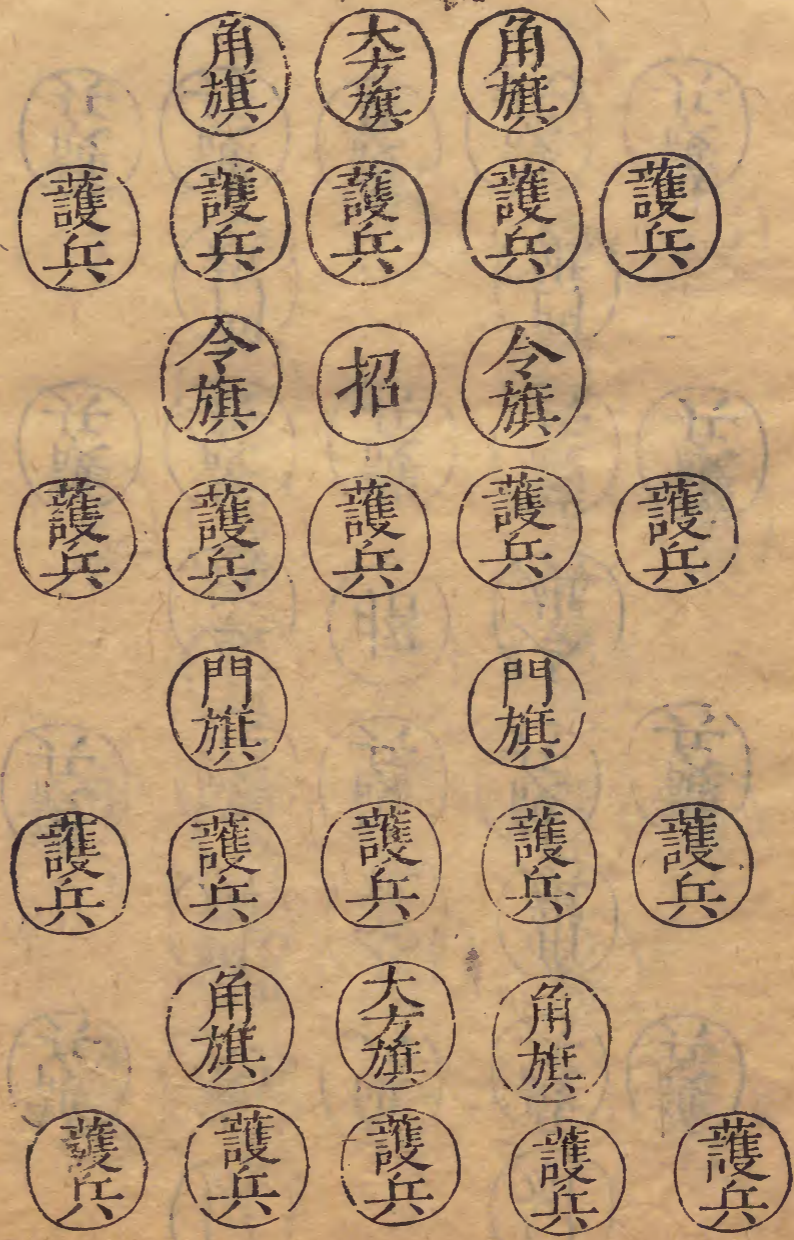 角旗 大方旗 角旗
護兵 護兵 護兵 護兵 護兵
令旗 招 令旗
護兵 護兵 護兵 護兵 護兵
門旗 門旗
護兵 護兵 護兵 護兵 護兵
角旗 大方旗 角旗
護兵 護兵 護兵 護兵 護兵